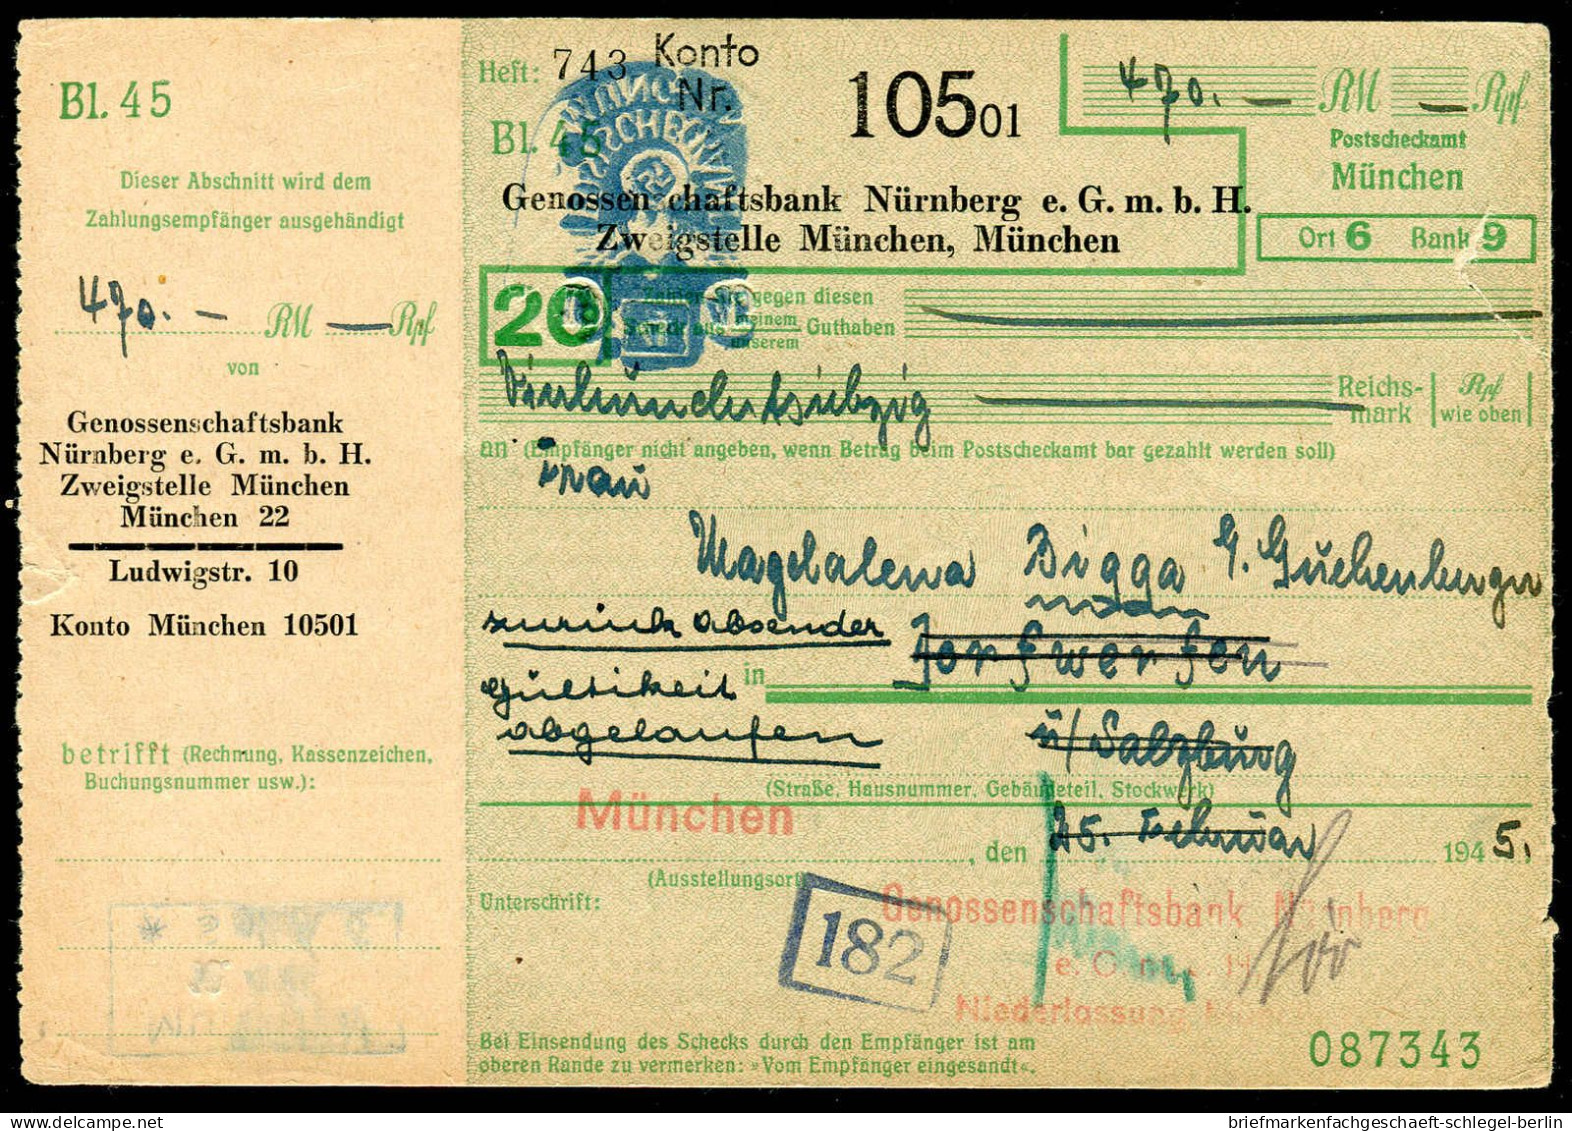 Bl. 45
Dieser Abschnitt wird dem
Zahlungsempfänger ausgehändigt
470.— RM — Rpf
von
Genossenschaftsbank
Nürnberg e. G. m. b. H.
Zweigstelle München
München 22
Ludwigstr. 10
Konto München 10501
betrifft (Rechnung, Kassenzeichen,
Buchungsnummer usw.):
Heft: 743 Konto
Nr. 105 01
Bl. 45
470.— RM — Rpf
Postscheckamt
München
Genossenschaftsbank Nürnberg e. G. m. b. H.
Zweigstelle München, München
Ort 6 Bank 9
20
Zahlen Sie gegen diesen
Scheck aus meinem Guthaben
unserem
Vierhundertsiebzig
Reichs-
mark
Rpf
wie oben
an (Empfänger nicht angeben, wenn Betrag beim Postscheckamt bar gezahlt werden soll)
Frau
Magdalena Bigga
zurück absender
in
Gültikeit
abgelaufen
ü/Salzburg
(Straße, Hausnummer, Gebäudeteil, Stockwerk)
München, den 25. Februar 1945.
(Ausstellungsort)
Unterschrift:
182
Genossenschaftsbank Nürnberg
Niederlassung
Bei Einsendung des Schecks durch den Empfänger ist am
oberen Rande zu vermerken: »Vom Empfänger eingesandt«.
087343
briefmarkenfachgeschaeft-schlegel-berlin